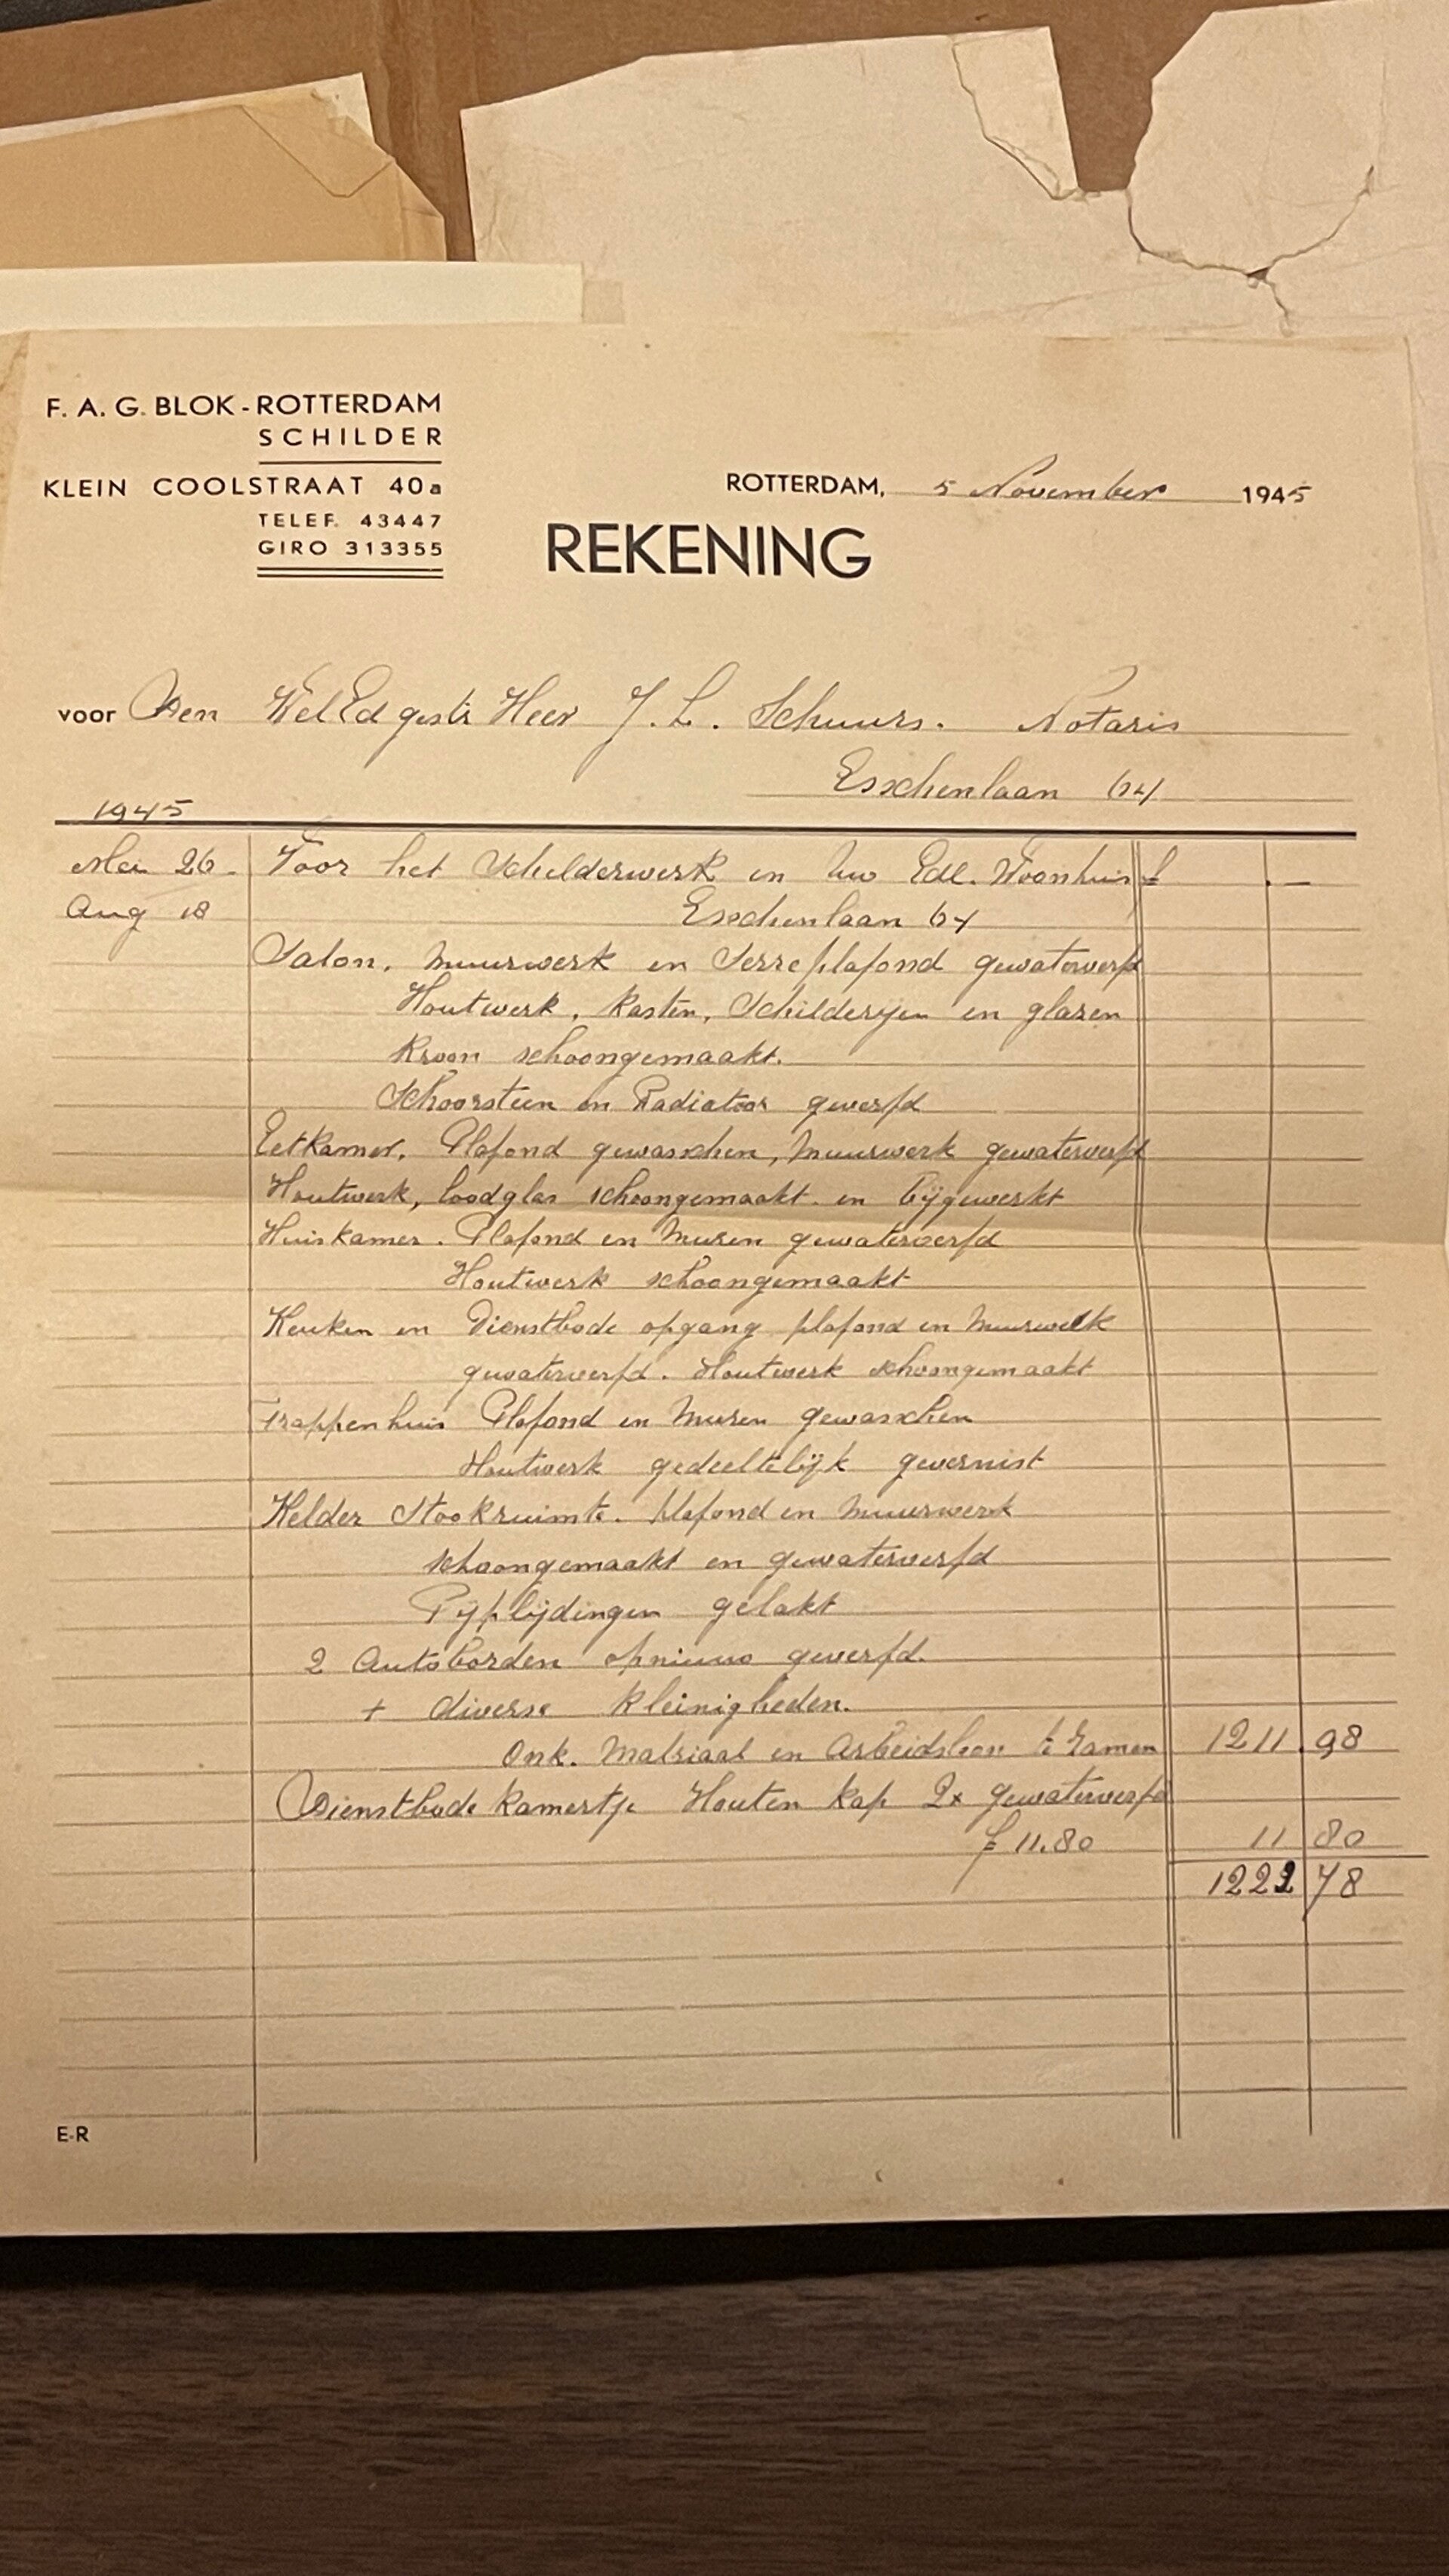 F. A. G. BLOK - ROTTERDAM
SCHILDER
KLEIN COOLSTRAAT 40a
TELEF. 43447
GIRO 313355
ROTTERDAM, 5 November 1945
REKENING
voor Den WelEdgestr Heer J. L. Schuurs. Notaris
Esschenlaan 64
1945
Mei 26. Voor het Schilderwerk in Uw Edl. Woonhuis f . —
Aug 18 Esschenlaan 64
Salon, Muurwerk en Serreplafond gewaterverfd
Houtwerk, Kasten, Schilderijen en glazen
Kroon schoongemaakt.
Schoorsteen en Radiatoor geverfd
Eetkamer. Plafond gewasschen, Muurwerk gewaterverfd
Houtwerk, loodglas schoongemaakt en bijgewerkt
Huiskamer. Plafond en Muren gewaterverfd
Houtwerk schoongemaakt
Keuken en Dienstbode opgang plafond en Muurwerk
gewaterverfd. Houtwerk schoongemaakt
Trappenhuis Plafond en Muren gewasschen
Houtwerk gedeeltelijk gevernist
Kelder Stookruimte. Plafond en Muurwerk
schoongemaakt en gewaterverfd
Pijplijdingen gelakt
2 Autoborden opnieuw geverfd.
+ diverse Kleinigheden.
Onk. Matriaal en Arbeidsloon te Zamen 1211.98
Dienstbode Kamertje Houten Kap 2x gewaterverfd
f 11.80 11 80
1222 78
E-R